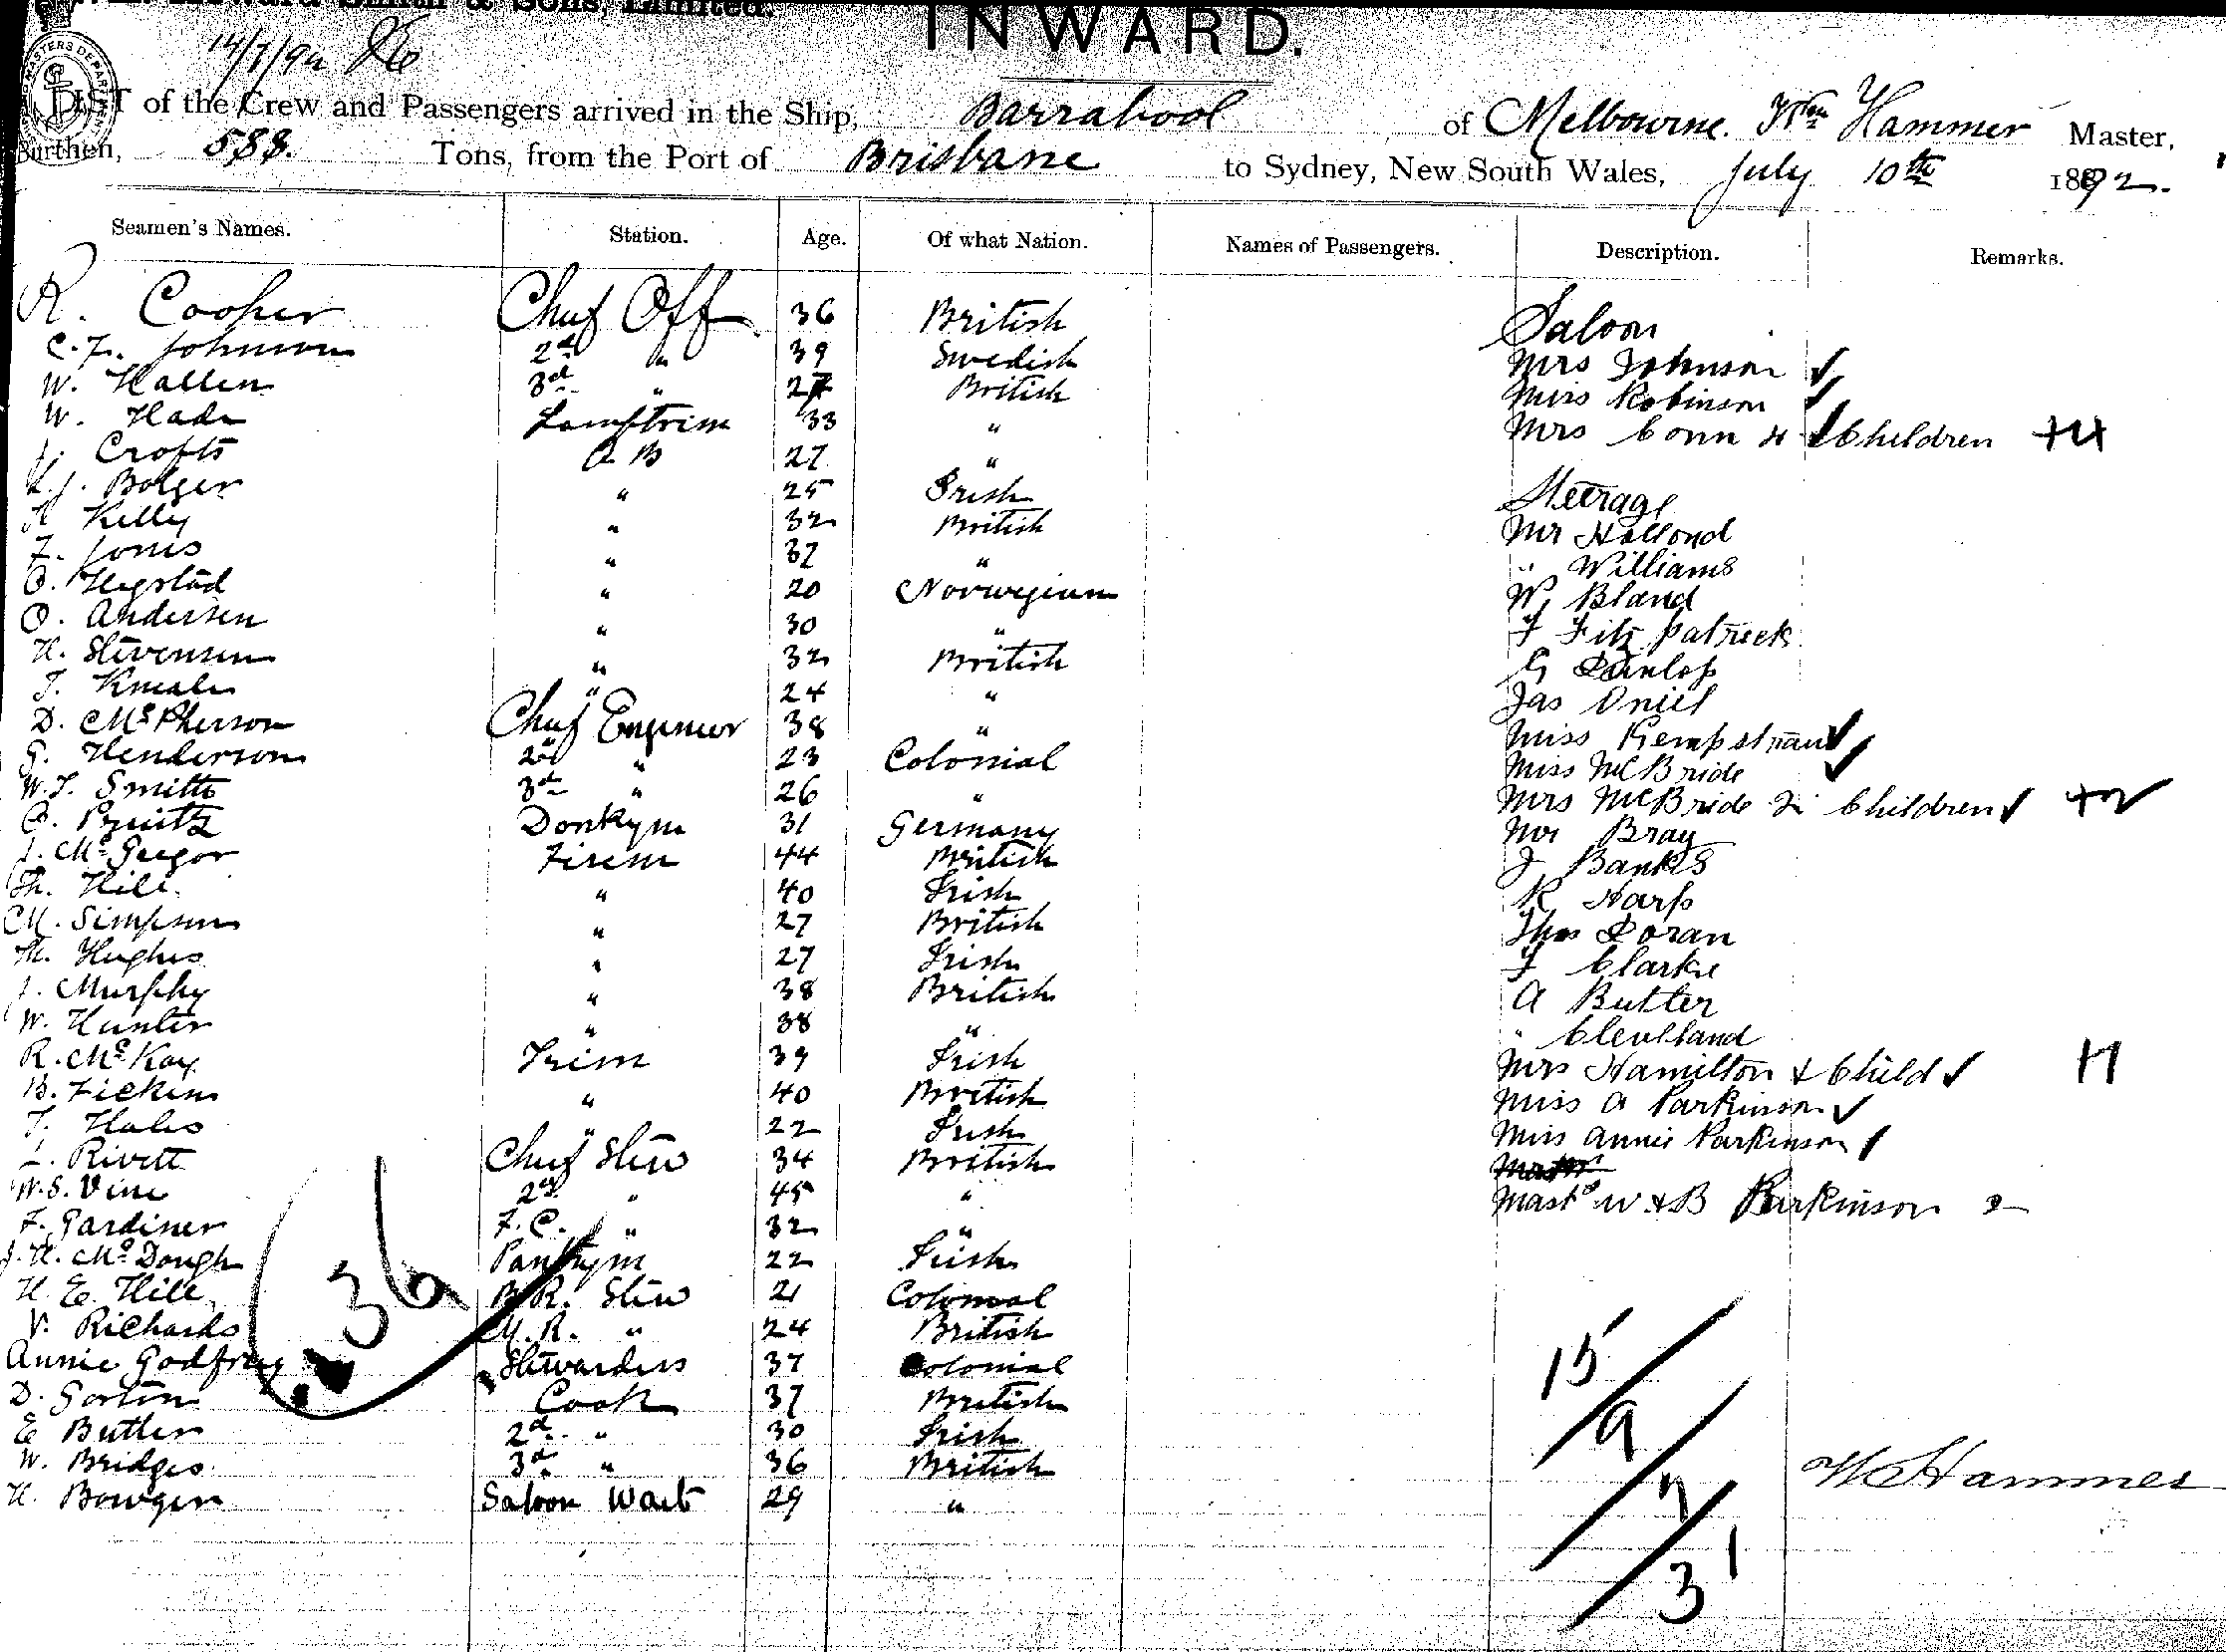 Howard Smith & Sons, Limited.
INWARD.
14/7/92
LIST of the Crew and Passengers arrived in the Ship, Barrabool of Melbourne. Wm Hammer Master,
Burthen, 588. Tons, from the Port of Brisbane to Sydney, New South Wales, July 10th 1892.
Seamen's Names. Station. Age. Of what Nation. Names of Passengers. Description. Remarks.
R. Cooper Chief Off 36 British Saloon
C.F. Johnson 2nd " 39 Swedish Mrs Johnson ✓
W. Hallen 3rd " 27 British Miss Robinson ✓
W. Hade Lamptrim 33 " Mrs Conn 4 ✓ Children +4
J. Crofts A B 27 "
L.J. Bolger " 25 Irish Steerage
Kelly " 32 British Mr Hollond
F. Jones " 37 " " Williams
O. Hegstad " 20 Norwegian W Bland
O. Andersen " 30 " F Fitzpatrick
H. Stevensen " 32 British G Dunlop
T. Kneale " 24 " Jas Oniel
D. McPherson Chief Engineer 38 " Miss Kempstran ✓
G. Henderson 2nd " 23 Colonial Miss McBride ✓
W.T. Smith 3rd " 26 " Mrs McBride 2 Children ✓ +2
Donkym 31 Germany Mr Bray
J. McGregor Firem 44 British J Banks
Th. Hill " 40 Irish R Harp
M. Simpson " 27 British Thos Doran
Th. Hughes " 27 Irish F Clarke
J. Murphy " 38 British A Butler
W. Hunter " 38 " " Clevelland
R. McKay Trim 39 Irish Mrs Hamilton & Child ✓ +1
B. Fickens " 40 British Miss A Parkinson ✓
T. Hales " 22 Irish Miss Annie Parkinson ✓
L. Rivett Chief Stew 34 British
W.S. Vine 2nd " 45 " Mast W & B Parkinson 2
F. Gardiner F.C. " 32 "
J.H. McDough Pantrym 22 Irish
H.E. Hill B.R. Stew 21 Colonial
V. Richards M.R. " 24 British
36
Annie Godfrey Stewardess 37 Colonial
D. Gorton Cook 37 British
E Butler 2d " 30 Irish
W. Bridges 3d " 36 British
H. Bowgen Saloon Wait 29 "
15/9/7/31
W Hammer